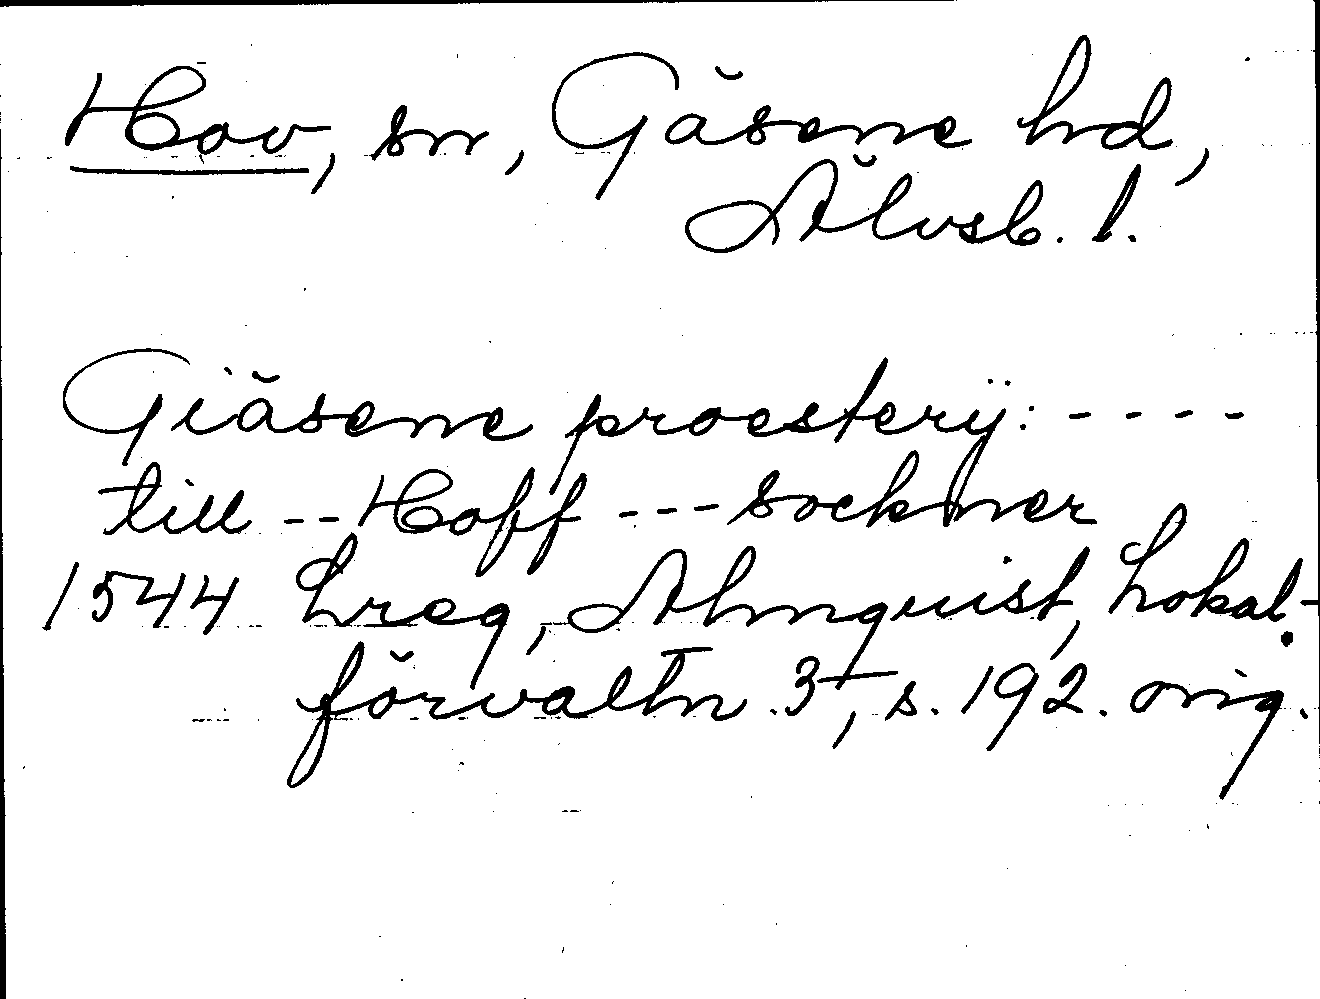 Hov, sn, Gäsene hd,
Älvsb. l.
Giäsene proesterÿ: ----
till -- Hoff --- sockner
1544 Lreg, Almquist, Lokal-
förvaltn. 3, s. 192. orig.